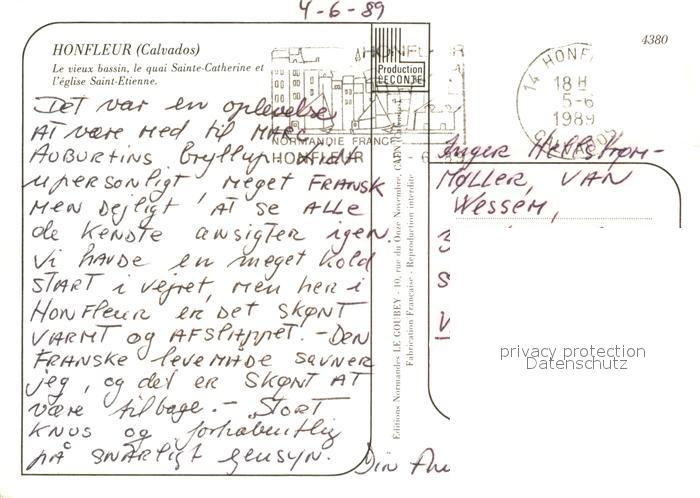 4-6-89
HONFLEUR (Calvados)
Le vieux bassin, le quai Sainte-Catherine et
l'église Saint-Etienne.
4380
Production
LECONTE
HONFLEUR
NORMANDIE FRANCE
HONFLEUR
14 HONF
18 H
5-6
1989
CALVADOS
Editions Normandes LE GOUBEY - 10, rue du Onze Novembre, CAEN (Calvados)
Fabrication Française - Reproduction interdite
Det var en oplevelse
AT være med til MARC
AUBURTINS bryllup.
upersonligt, meget FRANSK
MEN DEJLIGT AT SE ALLE
de KENDTE ansigter igen.
Vi havde en meget kold
START i vejret, men her i
HONFLEUR ER DET SKØNT
VARMT og AFSLAPPET. - DEN
FRANSKE levemåde savner
jeg, og det er SKØNT AT
være tilbage. - STORT
KNUS og forhåbentlig
på SNARLIGT GENSYN. Din
Inger Hellstrøm-
Møller, VAN
Wessem,
privacy protection
Datenschutz